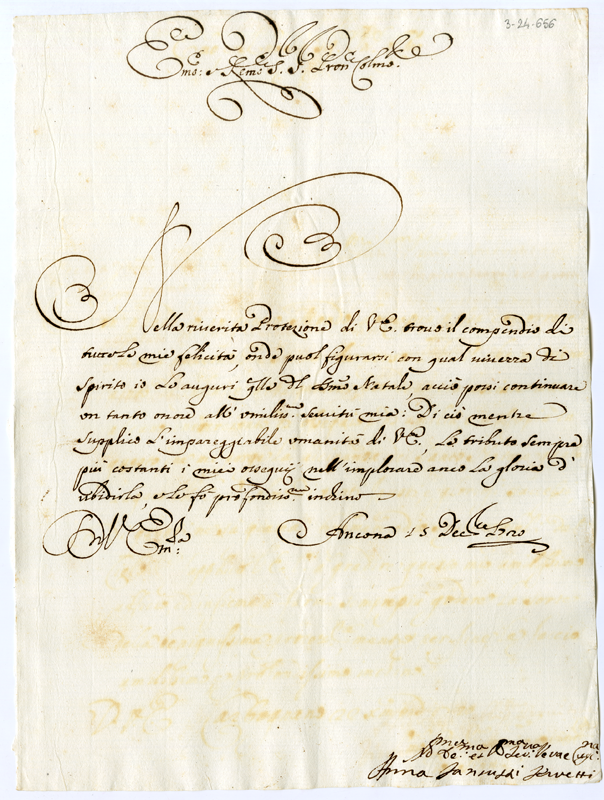 3-24-656
Emo: e Remo S. S. Pron Colmo:
Nella riverita Protezione di VE. trovo il compendio di
tutte le mie felicità, onde puol figurarsi con qual vivezza di
spirito io Le auguri qlle dl Smo Natale, acciò possi continuare
un tanto onore all' umiliss.ma servitù mia: Di ciò mentre
supplico l'impareggiabile umanità di VE, Le tributo sempre
più costanti i miei ossequij nell'implorare anco la gloria d'
ubidirla, e le fò profondiss.te inchino
Ancona 15 Dec.bre
Anna